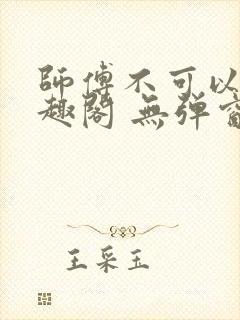 師傅不可以
趣閣 無弹窗
王采玉